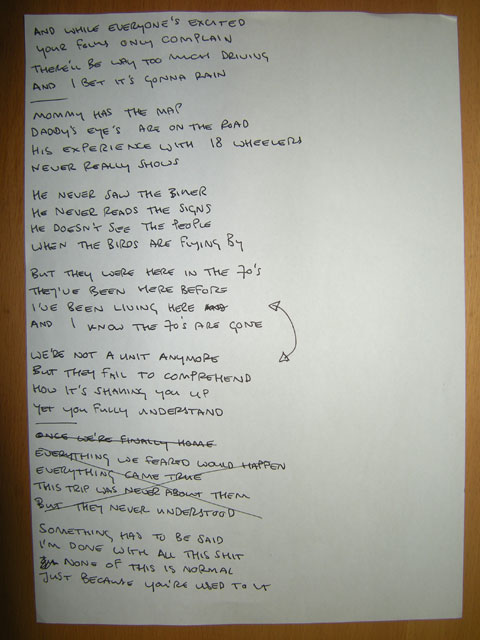 AND WHILE EVERYONE'S EXCITED
YOUR FOLKS ONLY COMPLAIN
THERE'LL BE WAY TOO MUCH DRIVING
AND I BET IT'S GONNA RAIN
MOMMY HAS THE MAP
DADDY'S EYE'S ARE ON THE ROAD
HIS EXPERIENCE WITH 18 WHEELERS
NEVER REALLY SHOWS
HE NEVER SAW THE
HE NEVER READS THE SIGNS
HE DOESN'T SEE THE PEOPLE
WHEN THE BIRDS ARE FLYING BY
BUT THEY WERE HERE IN THE 70'S
THEY'VE BEEN HERE BEFORE
I'VE BEEN LIVING HERE
AND I KNOW THE 70'S ARE GONE
WE'RE NOT A UNIT ANYMORE
BUT THEY FAIL TO COMPREHEND
HOW IT'S SHAKING YOU UP
YET YOU FULLY UNDERSTAND
ONCE WE'RE FINALLY HOME
EVERYTHING WE FEARED WOULD HAPPEN
EVERYTHING CAME TRUE
THIS TRIP WAS NEVER ABOUT THEM
BUT THEY NEVER UNDERSTOOD
SOMETHING HAD TO BE SAID
I'M DONE WITH ALL THIS SHIT
NONE OF THIS IS NORMAL
JUST BECAUSE YOU'RE USED TO IT